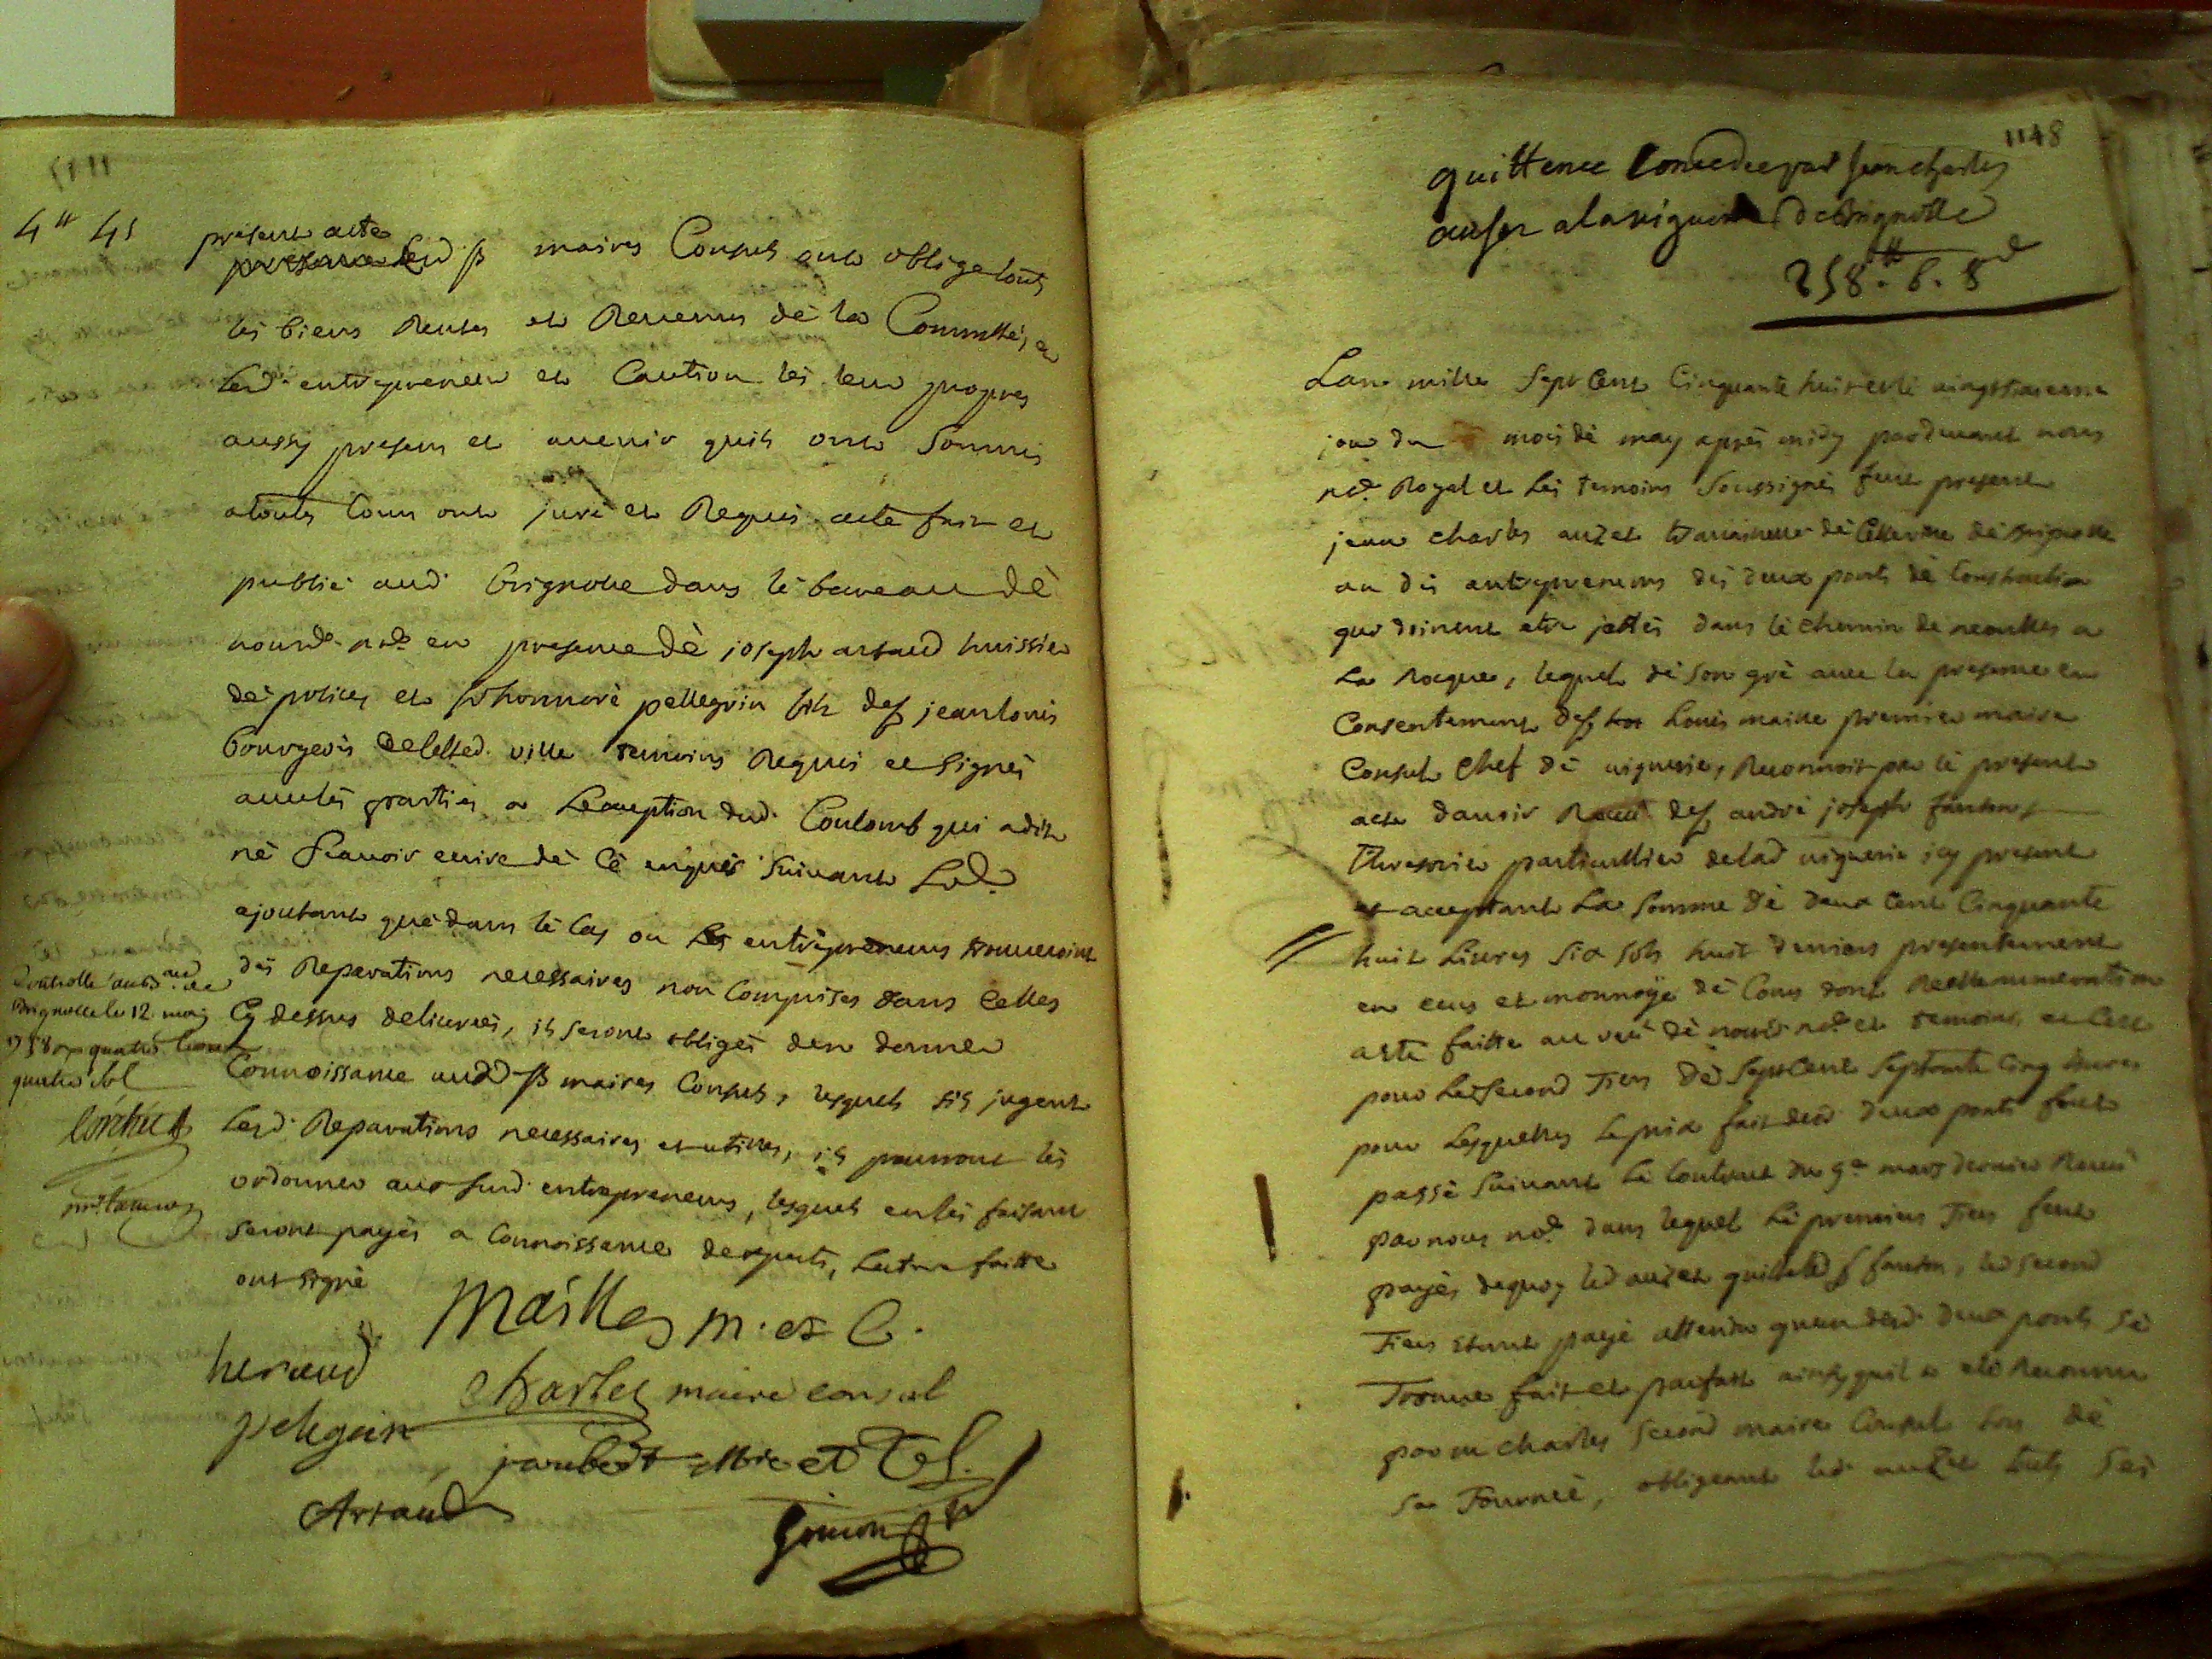 4# 4s
présent acte
lesd. srs maires Consuls ont obligé touts
les biens Rentes et Revenus dè la Comm.té, et
lesd. entrepreneur et Caution les leur propres
aussy presens et avenir quils ont Soumis
atoutes Cours ont juré et Requis acte fait et
publié aud. Brignolle dans lè bureau dè
nousd. no.re en presence dè joseph artaud huissier
dè police, et sr honnoré pellegrin fils de sr jean louis
bourgeois de lad. ville temoins Requis et signés
avec les parties a Lexception dud. Coulomb qui adit
nè scavoir ecrire dè cè enquis suivant Lord.
ajoutant què dans lè cas ou les entrepreneurs trouveroint
des Reparations necessaires non Comprises dans Celles
Cy dessus delivrées, ils seront obligés den donner
Connoissance auxd. srs maires Consuls, lesquels sils jugent
lesd. Reparations necessaires et utilles, ils pourront les
ordonner aux susd. entrepreneurs, lesquels en les faisant
seront payés a Connoissance dexperts, lecture faitte
ont signé
Controllé au bd. aud.
Brignolle le 12 may
1758 quatre livres
quatre sol
Maille m. et C.
heraud
Charles maire consul
pelegrin
jaubert
Artaud
Simon
1148
quittence Concedée par Jean charles
auser a la viguerie de Brignolle
258# . 6 . 8d
Lan mille sept Cent Cinquante huit et lè vingt
jour du mois dè may après midy pardevant nous
no.re Royal et Les temoins soussignés feut present
jean charles auzet travailleur dè Cette ville dè Brignolle
un des entrepreneurs des deux ponts dè Construction
qui doivent etre jettés dans lè chemin de neoulles a
La Roque, lequel dè son gré avec la presence et
Consentement de sr Louis maille premier maire
Consul Chef dè viguerie, Reconnoit par lè present
acte davoir Receu de sr andrè joseph fanton
Thresorier particullier de lad. viguerie icy present
et acceptant La somme dè deux cent Cinquante
huit Livres six sols huit deniers presentement
en ecus et monnoye dè Cours dont Reelle numeration
a eté faitte au veu dè nousd. no.re et temoins et Cest
pour Lè second Tiers dè sept cent septante cinq livres
pour Lesquelles Le prix fait desd. deux ponts feut
passé suivant Lè Contract du 9e mars dernier Receu
par nous no.re dans lequel Lè premier Tiers feut
payé, dequoy led. auzet quitte led. sr fanton, led. second
Tiers etant payé attendu quun desd. deux ponts sè
Trouve fait et parfait ainsy quil a eté Reconneu
par m charles second maire Consul lors dè
sa Tournée, obligeant led. auzet touts ses